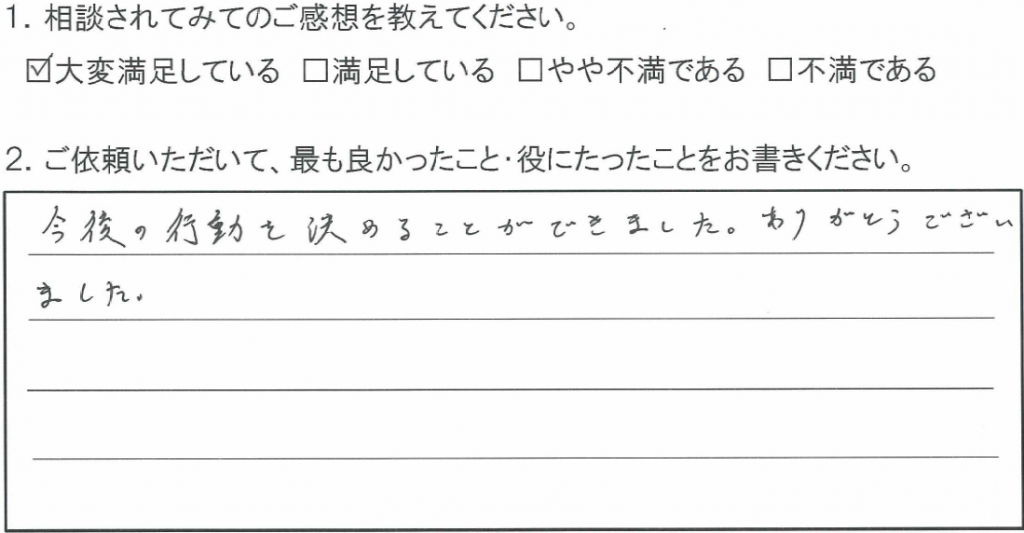 1. 相談されてみてのご感想を教えてください。
☑大変満足している □満足している □やや不満である □不満である
2. ご依頼いただいて、最も良かったこと・役にたったことをお書きください。
今後の行動を決めることができました。ありがとうござい
ました。